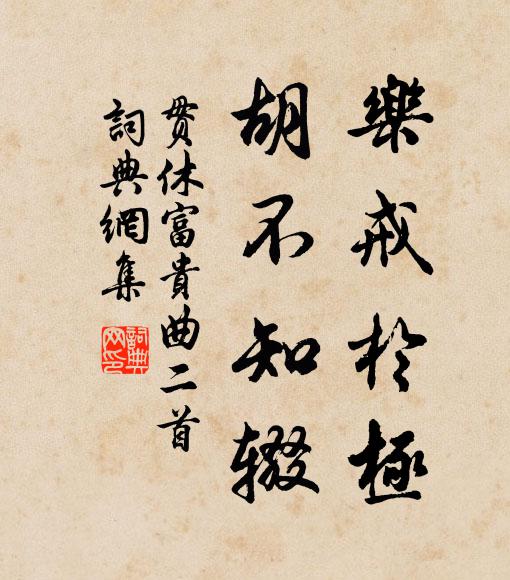 樂戒於極
胡不知辍
貫休富貴曲二首
詞典網集
詞典網印